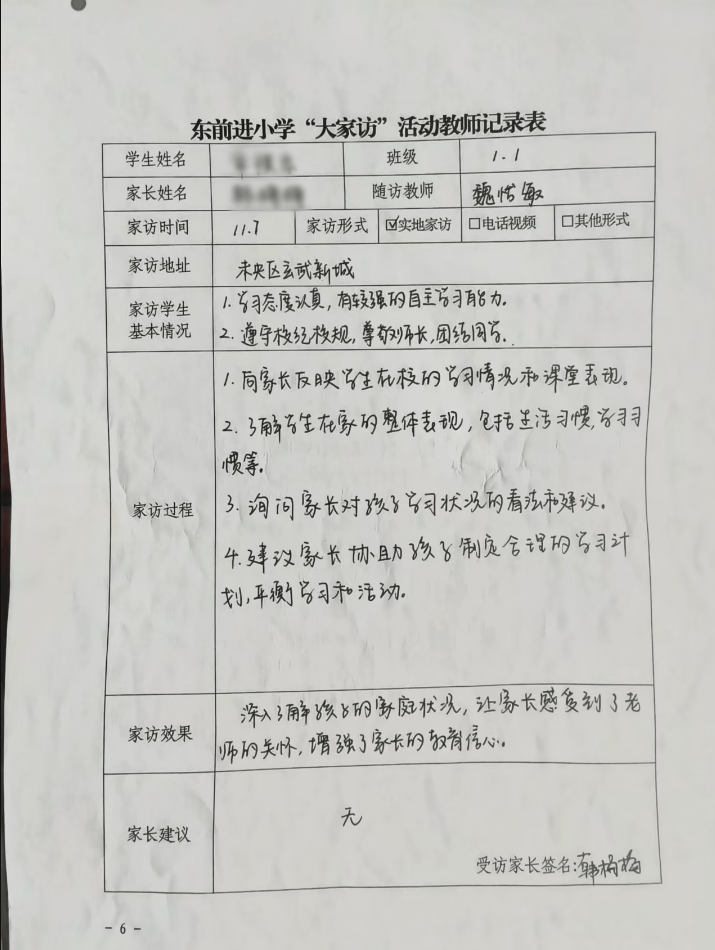 东前进小学“大家访”活动教师记录表
学生姓名 班级 1.1
家长姓名 随访教师 魏惜敏
家访时间 11.7 家访形式 ☑实地家访 □电话视频 □其他形式
家访地址 未央区玄武新城
家访学生
基本情况
1. 学习态度认真，有较强的自主学习能力。
2. 遵守校纪校规，尊敬师长，团结同学。
家访过程
1. 向家长反映学生在校的学习情况和课堂表现。
2. 了解学生在家的整体表现，包括生活习惯，学习习
惯等。
3. 询问家长对孩子学习状况的看法和建议。
4. 建议家长协助孩子制定合理的学习计
划，平衡学习和活动。
家访效果
深入了解孩子的家庭状况，让家长感受到了老
师的关怀，增强了家长的教育信心。
家长建议
无
受访家长签名：韩梅梅
- 6 -